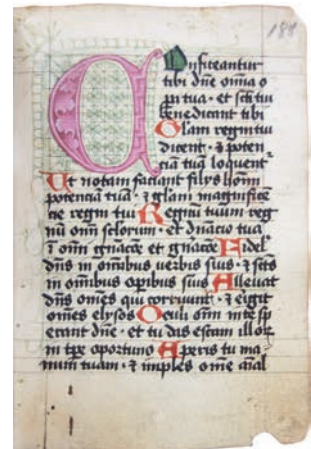 184
Confiteantur
tibi dne omia o
pa tua · et sci tui
benedicant tibi
Glam regni tui
dicent · ⁊ poten
cia tua loquent
Ut notam faciant filys homi
potencia tua · ⁊ glam magnifice
cie regni tui Regnu tuum reg
nu omi sclorum · et dnacio tua
i omi gnacoe et gnacoe Fidel
dns in omibus verbis suis · ⁊ scts
in omibus opibus suis Alleuat
dns omes qui corruunt · ⁊ eigit
omes elysos Oculi omi in te sp
erant dne · et tu das escam illor
in tpe oportuno Aperis tu ma
num tuam · ⁊ imples ome aial